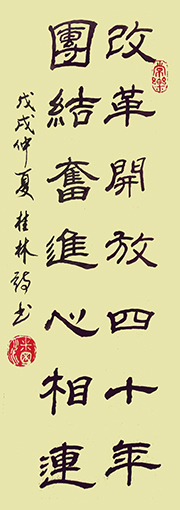 改革開放四十年
團結奮進心相連
戊戌仲夏桂林詩书